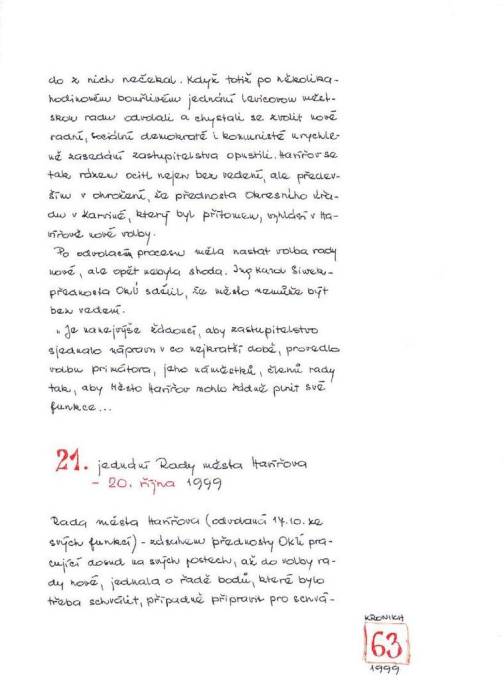 do z nich nečekal. Když totiž po několika-
hodinovém bouřlivém jednání levicovou měst-
skou radu odvolali a chystali se zvolit nové
radní, sociální demokraté i komunisté urychle-
ně zasedání zastupitelstva opustili. Havířov se
tak rázem ocitl nejen bez vedení, ale přede-
vším v ohrožení, že přednosta Okresního úřa-
du v Karviné, který byl přítomen, vyhlásí v Ha-
vířově nové volby.
Po odvolacím procesu měla nastat volba rady
nové, ale opět nebyla shoda. Ing Karol Siwek-
přednosta OkÚ sdělil, že město nemůže být
bez vedení.
„Je nanejvýše žádoucí, aby zastupitelstvo
sjednalo nápravu v co nejkratší době, provedlo
volbu primátora, jeho náměstků, členů rady
tak, aby Město Havířov mohlo řádně plnit své
funkce...
21. jednání Rady města Havířova
- 20. října 1999
Rada města Havířova (odvolaná 17.10. ze
svých funkcí) - zásahem přednosty OkÚ pra-
cující dosud na svých postech, až do volby ra-
dy nové, jednala o řadě bodů, které bylo
třeba schválit, případně připravit pro schvá-
KRONIKA
63
1999